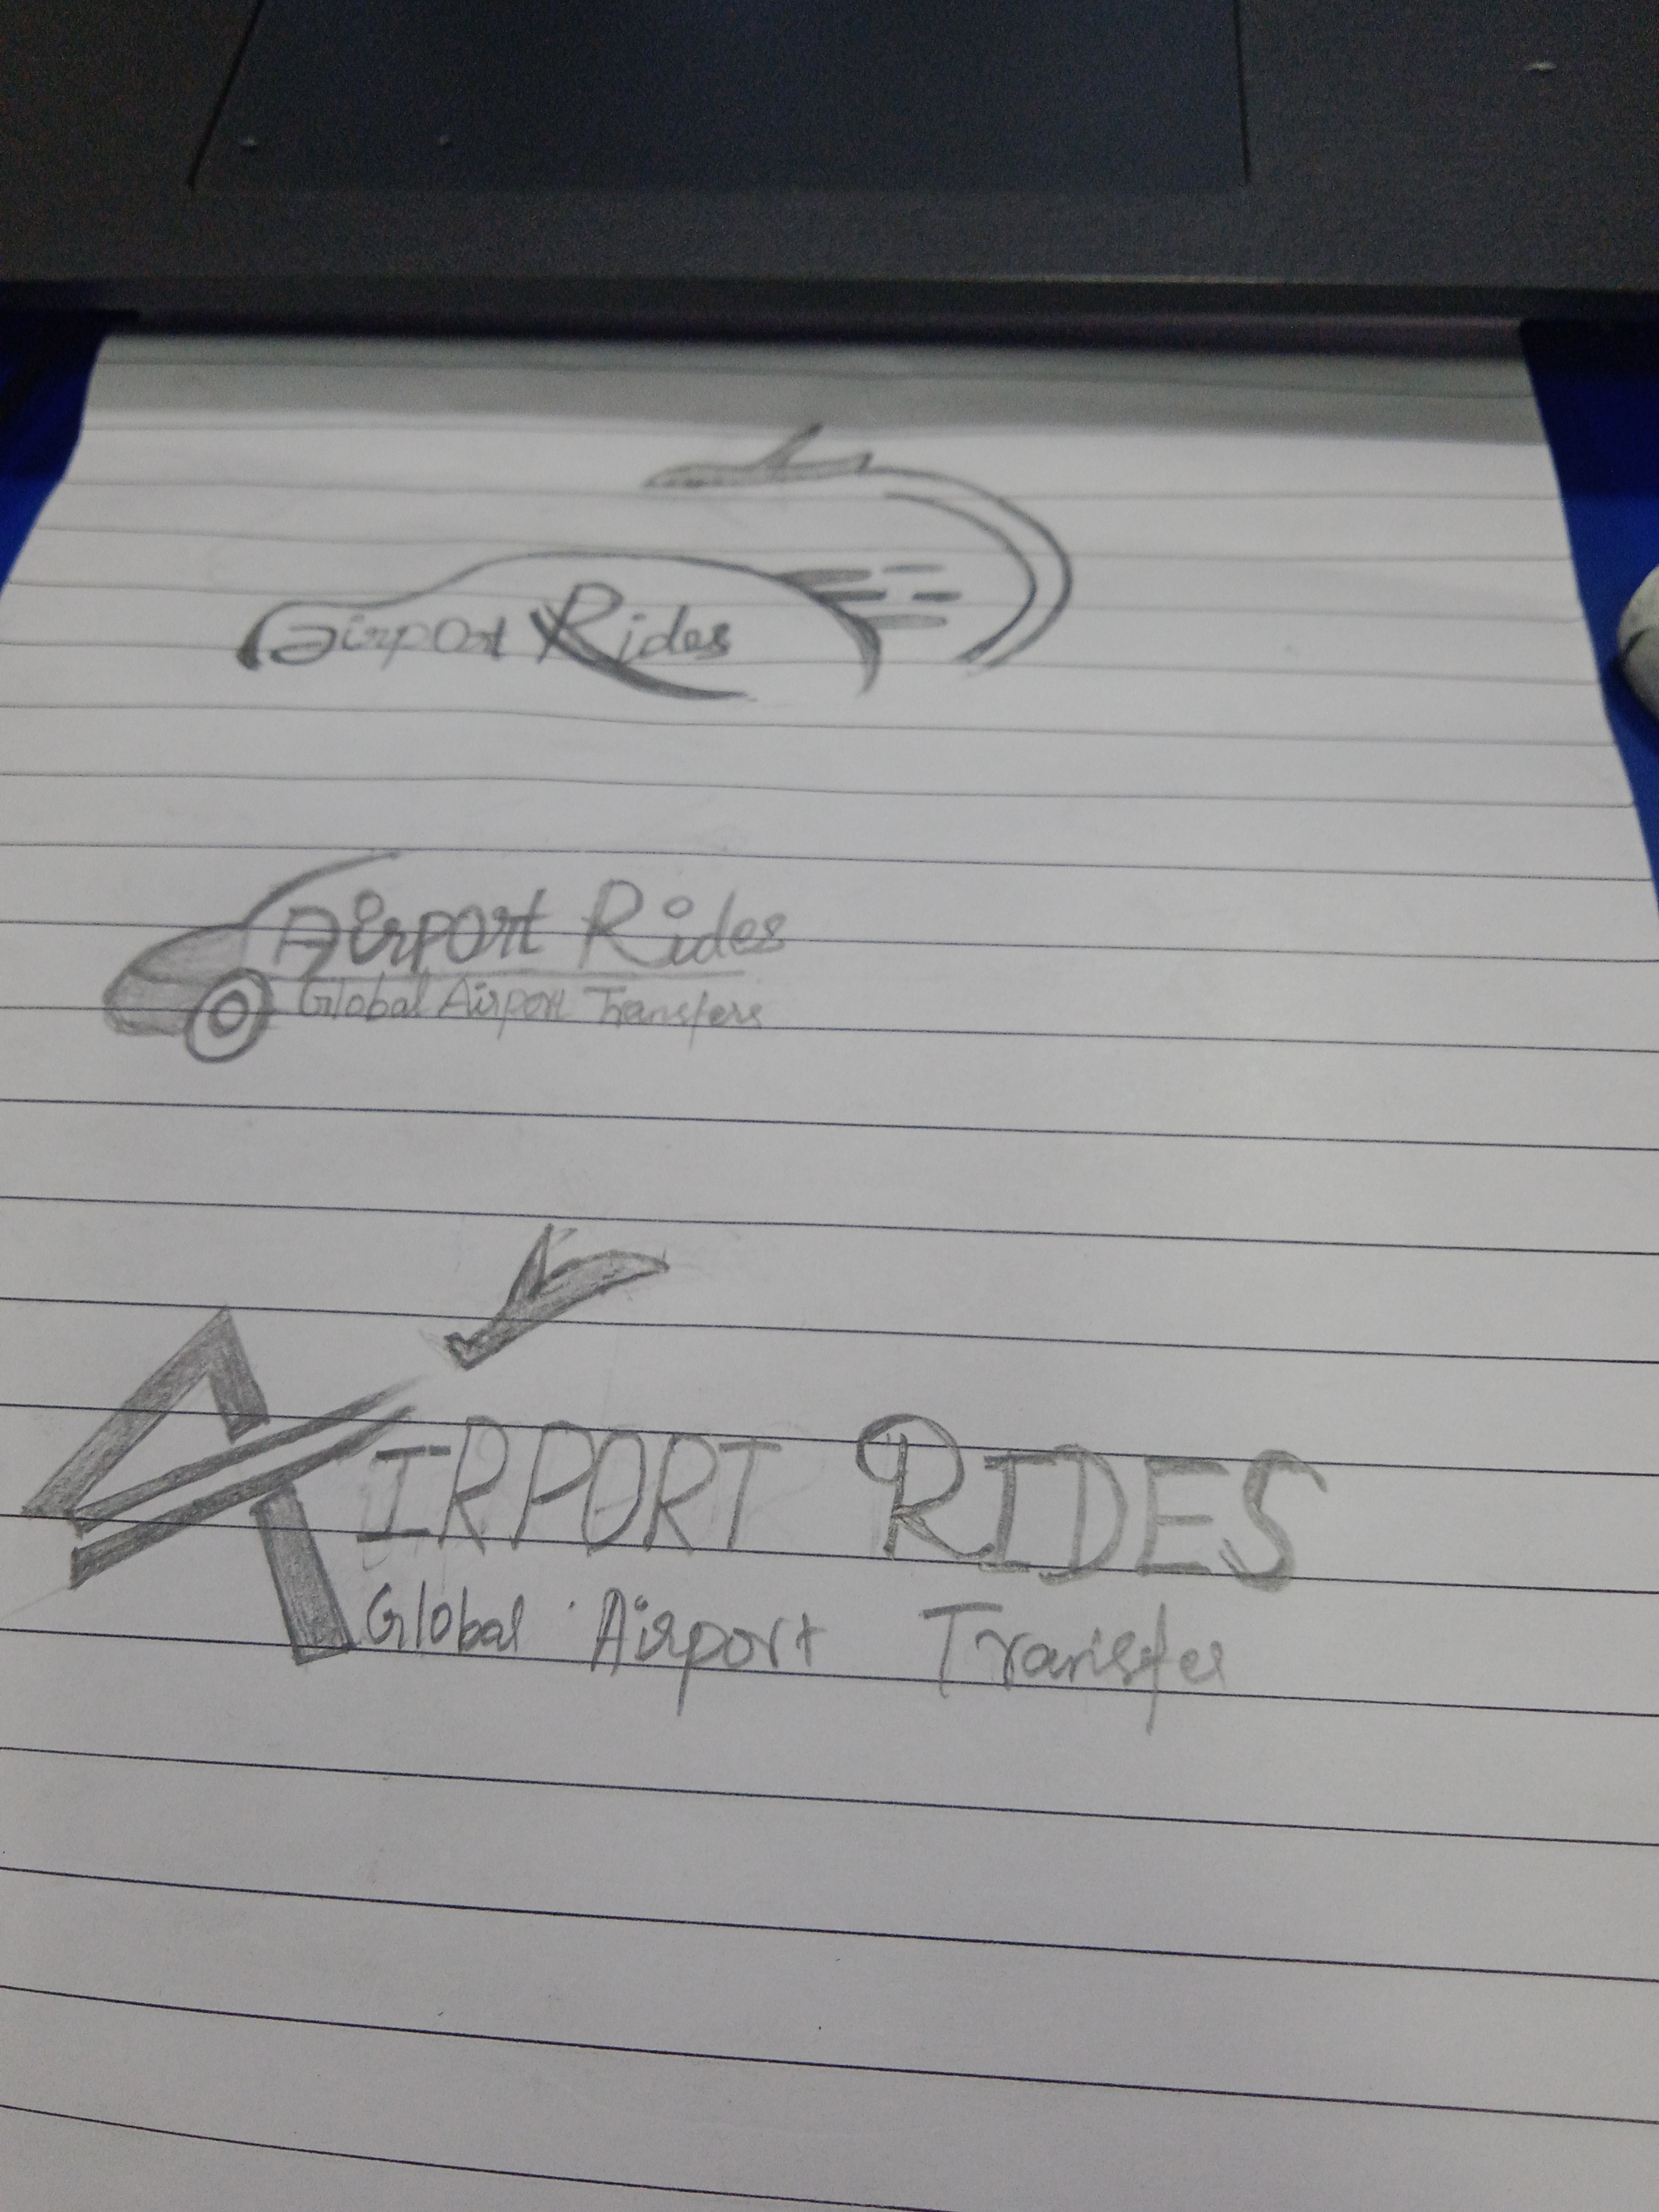 airport Rides
Airport Rides
Global Airport Transfers
AIRPORT RIDES
Global Airport Transfer